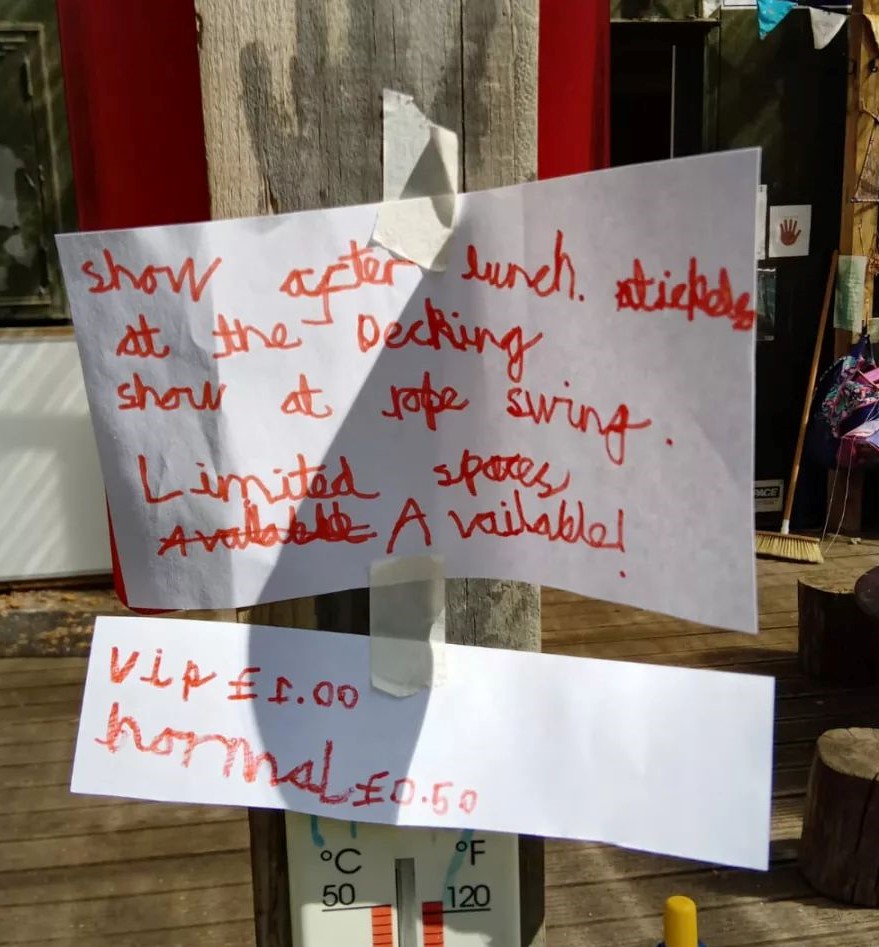 show after lunch. stickets
at the Decking
show at rope swing.
Limited spaces
Available Available!
Vip £1.00
normal £0.50
°C °F
50 120
PACE